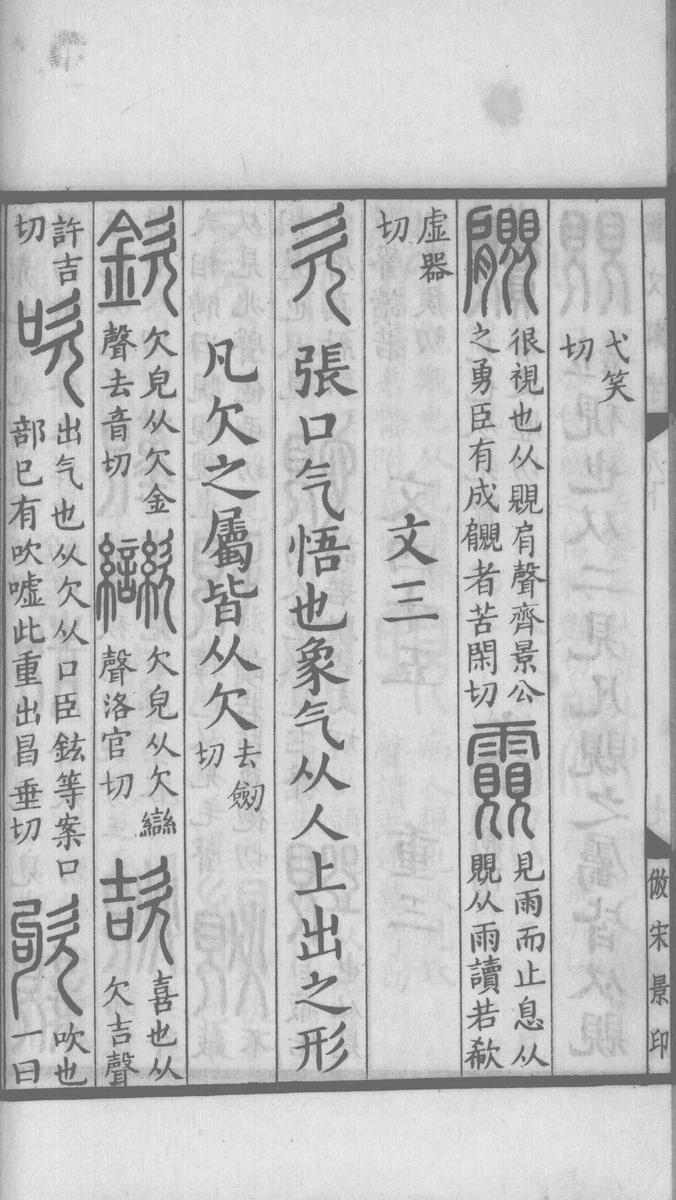 弋笑
切
很視也从覞肩聲齊景公
之勇臣有成者苦閑切
見雨而止息从
覞从雨讀若欷
虛器
切
文三
欠
張口气悟也象气从人上出之形
凡欠之屬皆从欠
去劒
切
欽
欠皃从欠金
聲去音切
欠皃从欠䜌
聲洛官切
欯
喜也从
欠吉聲
許吉
切
吹
出气也从欠从口臣鉉等案口
部已有吹噓此重出昌垂切
欨
吹也
一曰
倣宋景印